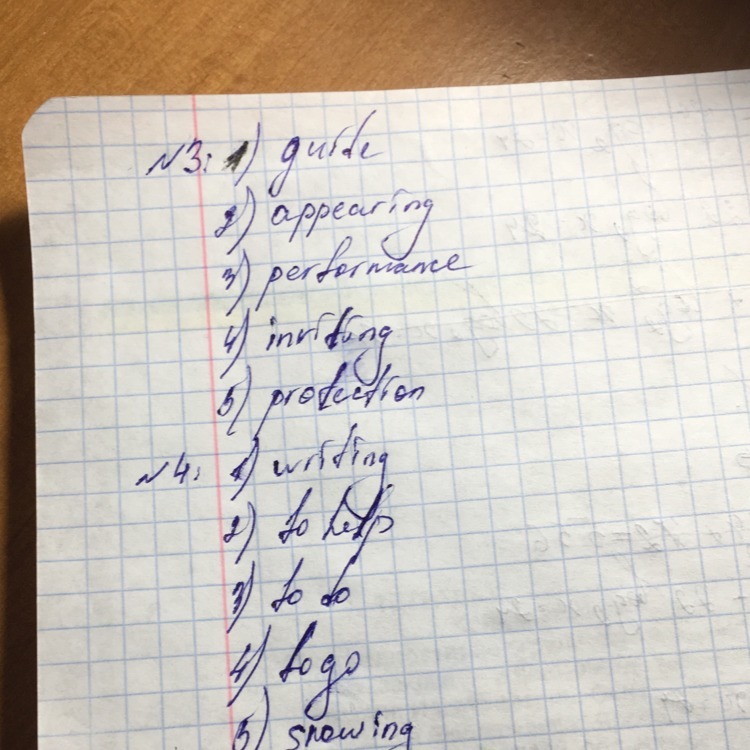 N3: 1) guide
2) appearing
3) performance
4) inviting
5) protection
N4: 1) writing
2) to help
3) to do
4) to go
5) snowing